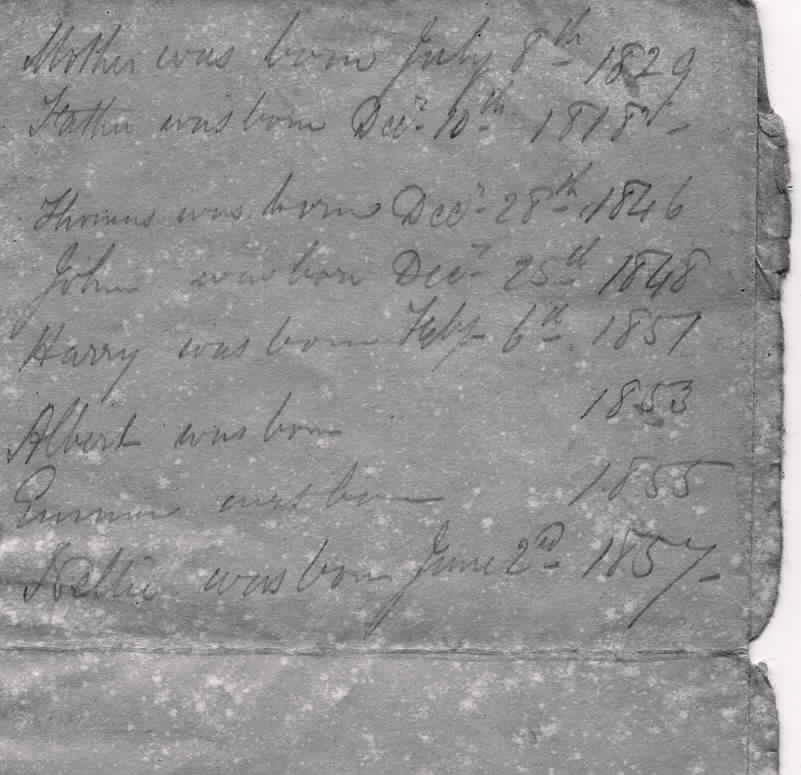 Mother was born July 8th 1829
Father was born Decr 10th 1818
Thomas was born Decr 28th 1846
John was born Decr 25th 1848
Harry was born Feby 6th 1851
Albert was born 1853
Emma was born 1855
Nellie was born June 2nd 1857